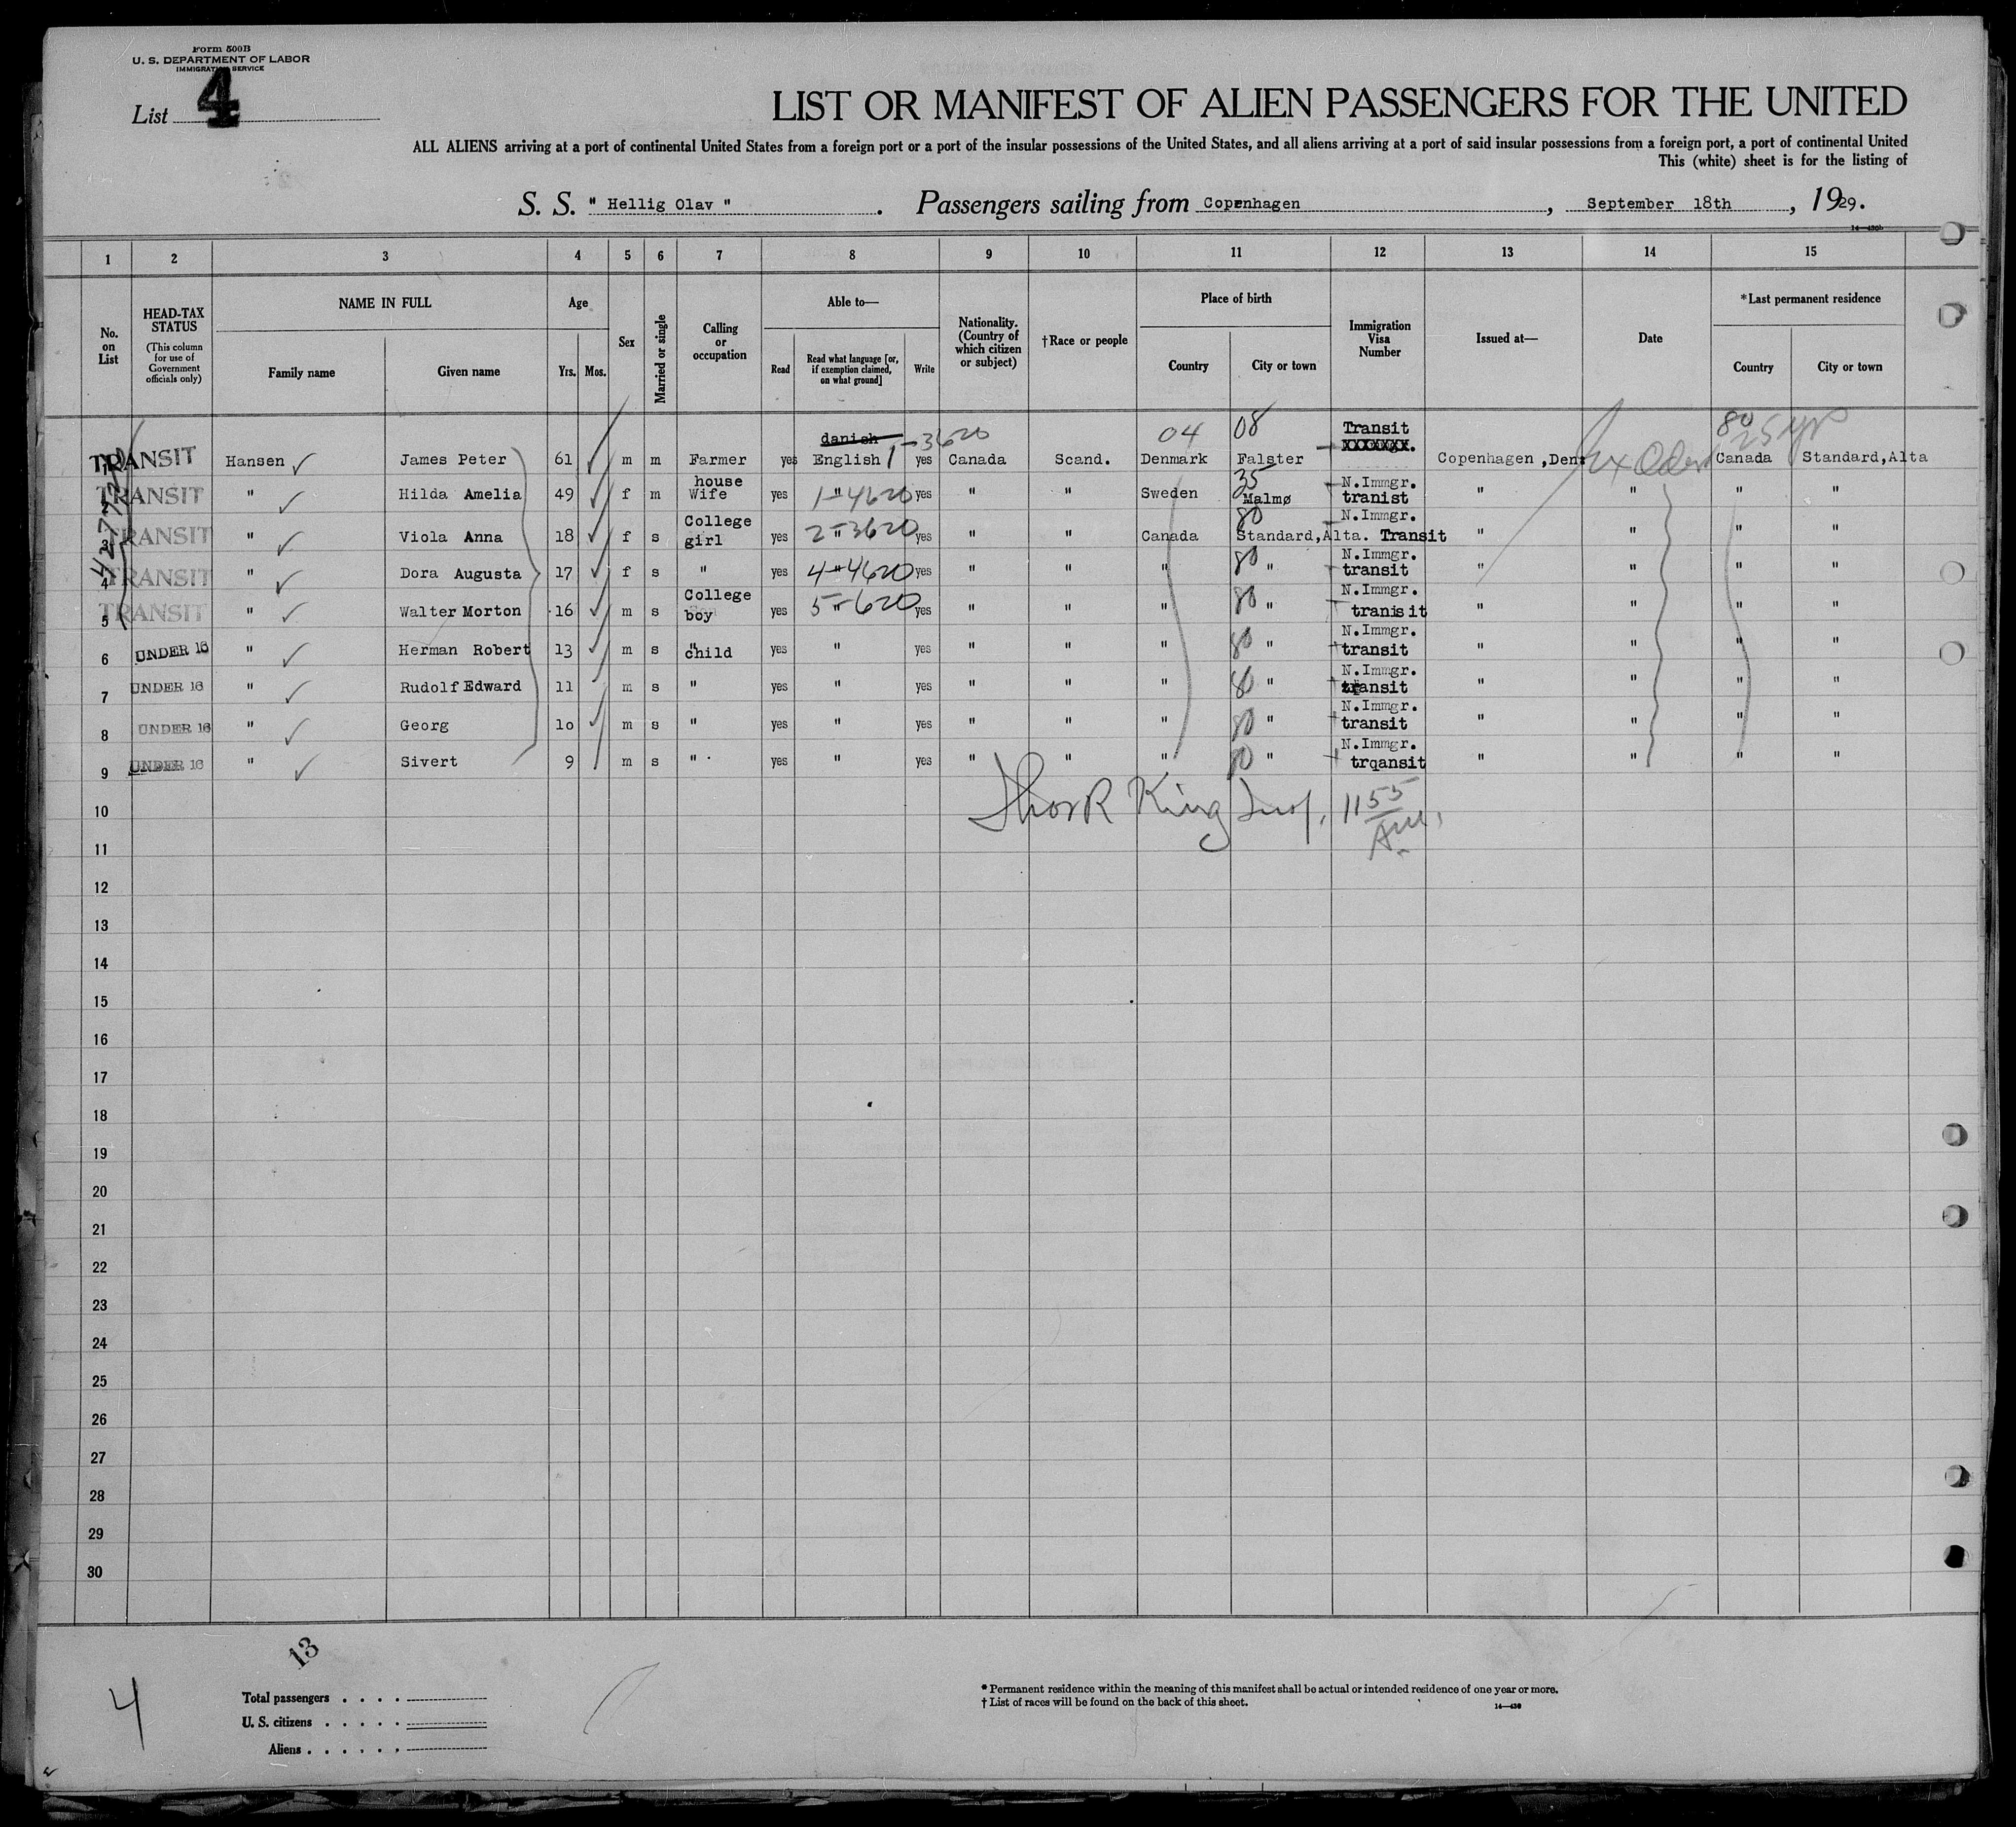 Form 500B
U. S. DEPARTMENT OF LABOR
IMMIGRATION SERVICE
List 4
LIST OR MANIFEST OF ALIEN PASSENGERS FOR THE UNITED
ALL ALIENS arriving at a port of continental United States from a foreign port or a port of the insular possessions of the United States, and all aliens arriving at a port of said insular possessions from a foreign port, a port of continental United
This (white) sheet is for the listing of
S. S. " Hellig Olav " . Passengers sailing from Copenhagen , September 18th , 1929.
14—430b
1 2 3 4 5 6 7 8 9 10 11 12 13 14 15
No. on List
HEAD-TAX STATUS (This column for use of Government officials only)
NAME IN FULL
Family name Given name
Age
Yrs. Mos.
Sex
Married or single
Calling or occupation
Able to—
Read Read what language [or, if exemption claimed, on what ground] Write
Nationality. (Country of which citizen or subject)
†Race or people
Place of birth
Country City or town
Immigration Visa Number
Issued at—
Date
*Last permanent residence
Country City or town
danish 1-3620 04 08 Transit XXXXXXX. 80 25 yrs
TRANSIT Hansen James Peter 61 m m Farmer yes English yes Canada Scand. Denmark Falster Copenhagen,Den. Canada Standard,Alta
house 35 N.Immgr.
TRANSIT " Hilda Amelia 49 f m Wife yes 1-"4620 yes " " Sweden Malmø tranist " " " "
College 80 N.Immgr.
3 TRANSIT " Viola Anna 18 f s girl yes 2-"3620 yes " " Canada Standard,Alta. Transit " " "
80 N.Immgr.
4 TRANSIT " Dora Augusta 17 f s " yes 4-"4620 yes " " " " transit " " " "
College 80 N.Immgr.
5 TRANSIT " Walter Morton 16 m s boy yes 5-"620 yes " " " " tranisit " " " "
80 N.Immgr.
6 UNDER 16 " Herman Robert 13 m s child yes " yes " " " " transit " " " "
80 N.Immgr.
7 UNDER 16 " Rudolf Edward 11 m s " yes " yes " " " " transit " " " "
80 N.Immgr.
8 UNDER 16 " Georg 1o m s " yes " yes " " " " transit " " " "
80 N.Immgr.
9 UNDER 16 " Sivert 9 m s " yes " yes " " " " trqansit " " " "
10 King Insp. 11 55 Am.
11
12
13
14
15
16
17
18
19
20
21
22
23
24
25
26
27
28
29
30
13
4
Total passengers . . . .
U. S. citizens . . . . .
Aliens . . . . . .
* Permanent residence within the meaning of this manifest shall be actual or intended residence of one year or more.
† List of races will be found on the back of this sheet.
14—430